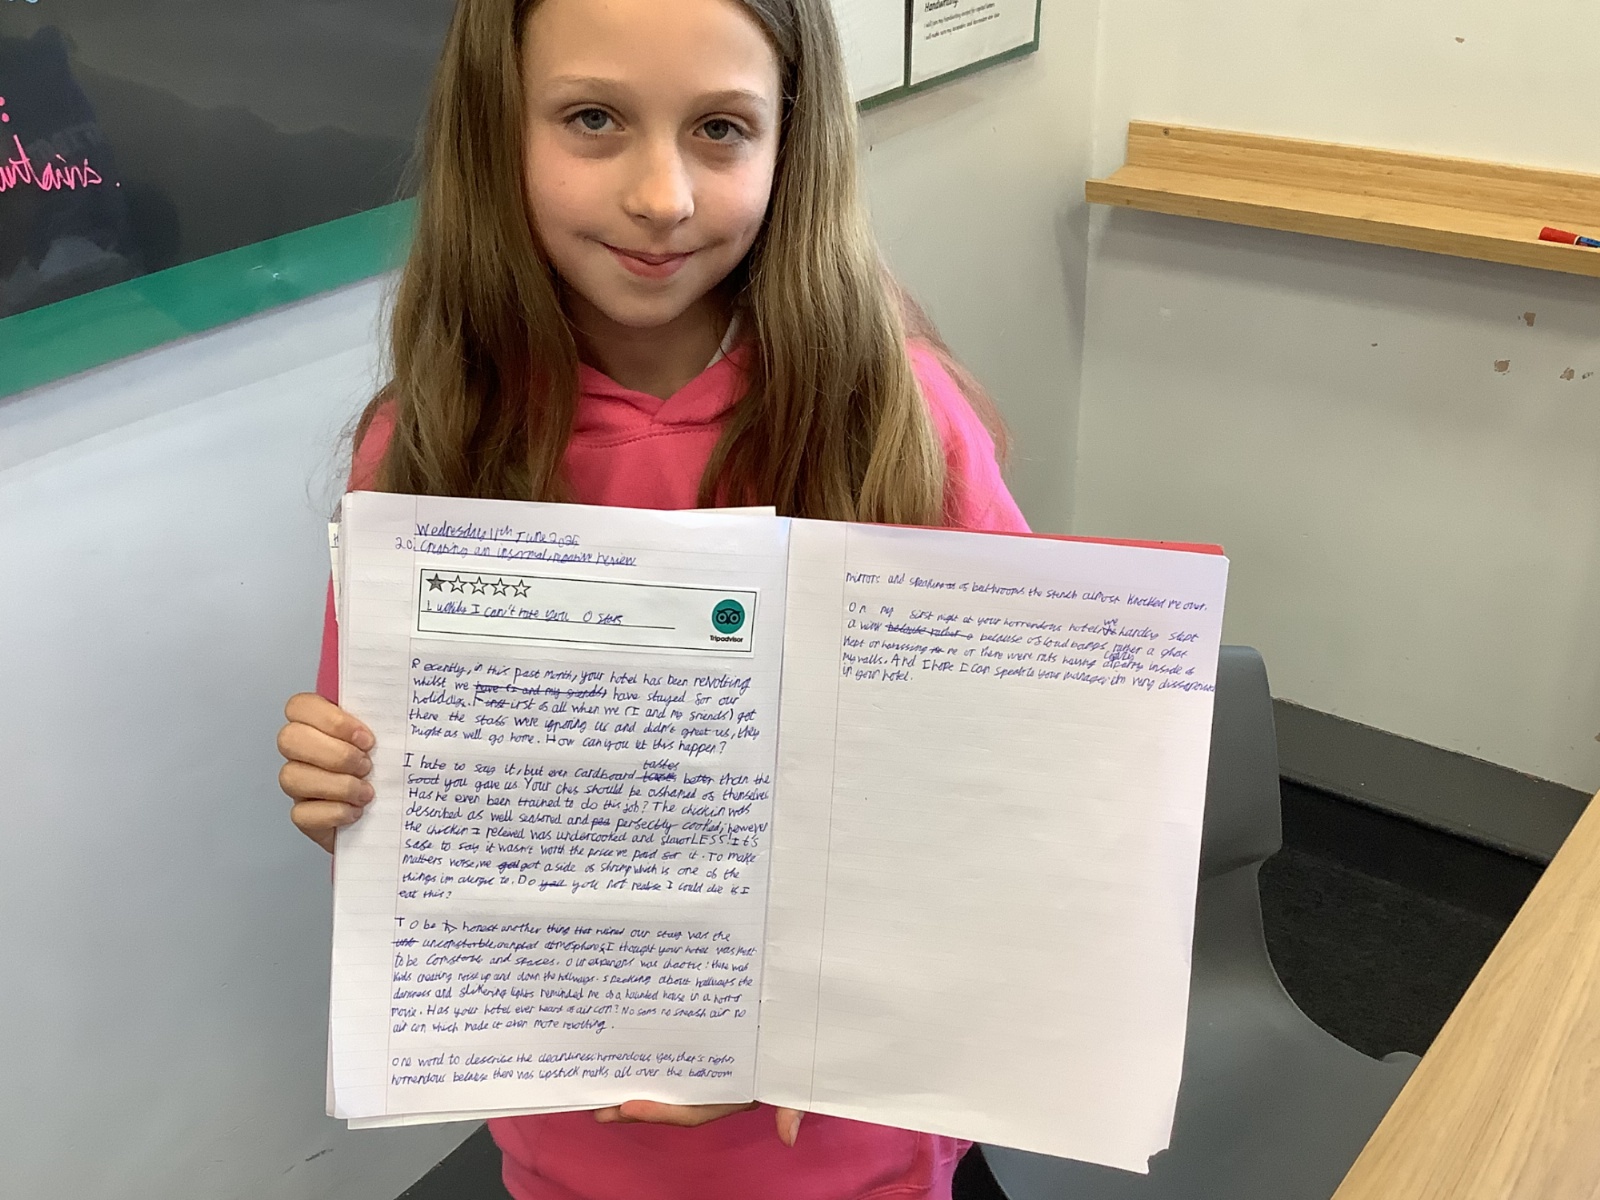 Handwriting
Wednesday 11th June 2026
L.O. Creating an informal, negative review
I wish I can't rate you 0 stars
Tripadvisor
Recently, in this past month, your hotel has been revolting
whilst we have (I and my friends) have stayed for our
holiday. First of all when we (I and my friends) got
there the staff were ignoring us and didn't greet us, they
might as well go home. How can you let this happen?
I hate to say it, but even cardboard tastes better than the
food you gave us Your chef should be ashamed of themselves
Has he even been trained to do this job? The chickin was
described as well seasoned and perfectly cooked; however
the chickin I recieved was undercooked and flavorLESS! It's
safe to say it wasn't worth the price we paid for it. To make
matters worse, we got a side of shrimp which is one of the
things im alergic to. Do you not realise I could die if I
eat this?
To be honest another thing that ruined our stay was the
uncomfortable, atmosphere & I thought your hotel was ment
to be comftorble and . Our was chaotic: there was
kids creating noise up and down the hallways. Speaking about hallways the
darkness and flickering lights reminded me of a haunted house in a horror
movie. Has your hotel ever heard of air con? No fans no air no
air con which made it even more revolting.
One word to describe the cleanliness: horrendous yes, that's right
horrendous because there was lipstick marks all over the bathroom
mirrors and speaking of bathrooms the stench almost knocked me over.
On my first night at your horrendous hotel, we hardly slept
a wink because of loud bangs, either a ghost
kept on harassing me or there were rats having a party inside of
my walls. And I hope I can speak to your manager im very dissapointed
in your hotel.